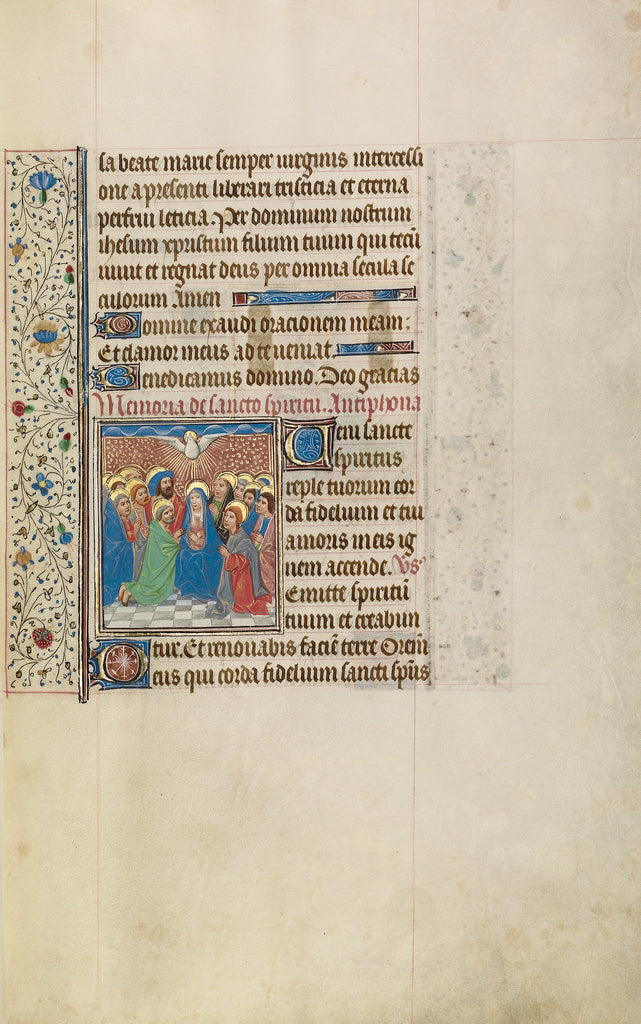 sa beate marie semper uirginis intercessi
one a presenti liberari tristicia et eterna
perfrui leticia. Per dominum nostrum
ihesum xpristum filium tuum qui tecū
uiuit et regnat deus per omnia secula se
culorum Amen
Domine exaudi oracionem meam:
Et clamor meus ad te ueniat.
Benedicamus domino. Deo gracias
Memoria de sancto spiritu. Antiphona
Ueni sancte
spiritus
reple tuorum cor
da fidelium et tui
amoris in eis ig
nem accende. Vs
Emitte spiritū
tuum et creabun
tur. Et renouabis faciē terre Orem
Deus qui corda fidelium sancti spūs